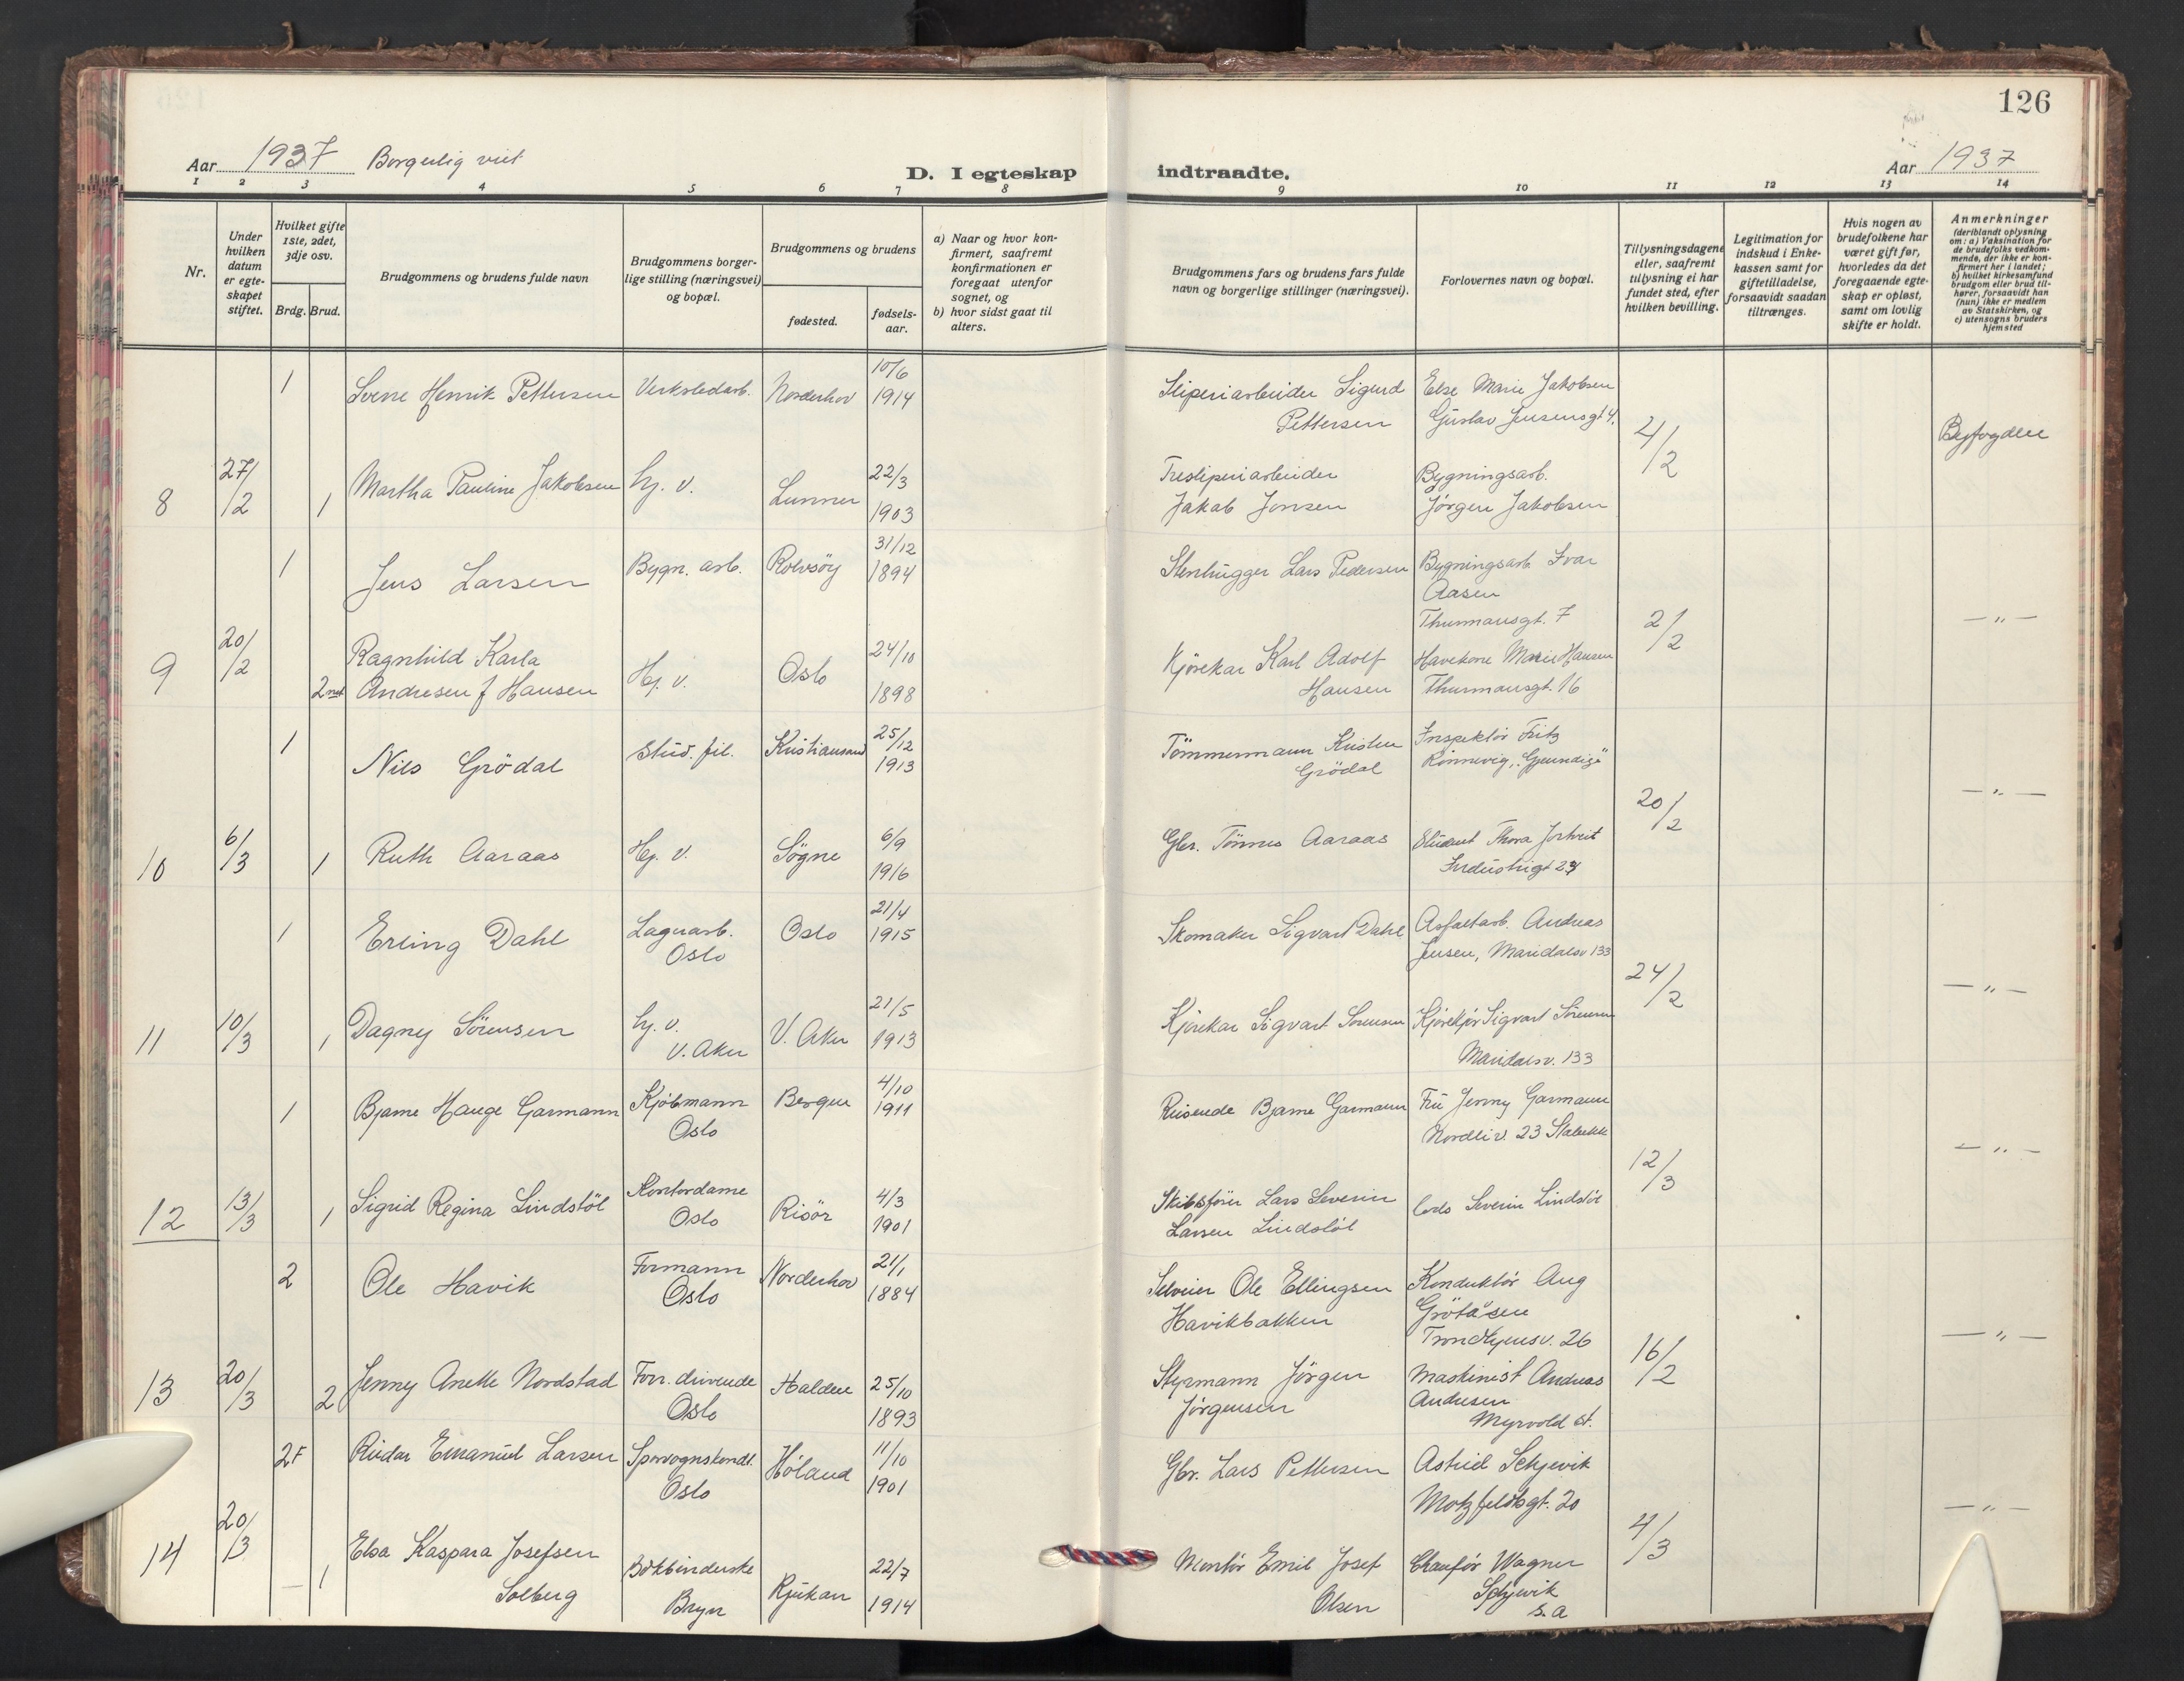 126
Aar 1937 Borgerlig viet
D. I egteskap indtraadte.
Aar 1937
1 2 3 4 5 6 7 8 9 10 11 12 13 14
Nr.
Under hvilken datum er egte-skapet stiftet.
Hvilket gifte 1ste, 2det, 3dje osv.
Brdg. Brud.
Brudgommens og brudens fulde navn
Brudgommens borger-lige stilling (næringsvei) og bopæl.
Brudgommens og brudens
fødested.
fødsels-aar.
a) Naar og hvor kon-firmert, saafremt konfirmationen er foregaat utenfor sognet, og
b) hvor sidst gaat til alters.
Brudgommens fars og brudens fars fulde navn og borgerlige stillinger (næringsvei).
Forlovernes navn og bopæl.
Tillysningsdagene eller, saafremt tillysning ei har fundet sted, efter hvilken bevilling.
Legitimation for indskud i Enke-kassen samt for giftetilladelse, forsaavidt saadan tiltrænges.
Hvis nogen av brudefolkene har været gift før, hvorledes da det foregaaende egte-skap er opløst, samt om lovlig skifte er holdt.
Anmerkninger (deriblandt oplysning om: a) Vaksination for de brudefolks vedkom-mende, der ikke er kon-firmert her i landet; b) hvilket kirkesamfund brudgom eller brud til-hører, forsaavidt han (hun) ikke er medlem av Statskirken, og c) utensogns bruders hjemsted
1 Sverre Henrik Pettersen Verkstedarb. Norderhov 10/6 1914 Sliperiarbeider Sigurd Pettersen Else Marie Jakobsen Gustav Jensensgt 4.
8 27/2 1 Martha Pauline Jakobsen Hj. v. Lunner 22/3 1903 Tresliperiarbeider Jakob Jonsen Bygningsarb. Jörgen Jakobsen 4/2 Byfogden
1 Jens Larsen Bygn. arb. Rolvsöy 31/12 1894 Stenhugger Lars Pedersen Bygningsarb Ivar Aasen Thurmansgt. 7
9 20/2 2net Ragnhild Karla Andresen f Hansen Hj. v. Oslo 24/10 1898 Kjörekar Karl Adolf Hansen Havekone Marie Hansen Thurmansgt. 16 2/2 — " —
1 Nils Grödal Stud. fil. Kristiansand 25/12 1913 Tömmermann Kristen Grödal Inspektör Fritz Rönnevig,
10 6/3 1 Ruth Aaraas Hj. v. Sögne 6/9 1916 Gbr. Tönnes Aaraas Student Thora Jortveit Industrigt 20/2 — " —
1 Erling Dahl Lagerarb. Oslo Oslo 21/4 1915 Skomaker Sigvart Dahl Asfaltarb. Andreas Jensen, Maridalsv 133
11 10/3 1 Dagny Sörensen Hj. v. V. Aker V. Aker 21/5 1913 Kjörekar Sigvart Sorensen Kjörekjör Sigvart Sörensen Maridalsv. 133 24/2 — " —
1 Bjarne Hauge Garmann Kjöbmann Oslo Bergen 4/10 1911 Reisende Bjarne Garmann Fru Jenny Garmann Nordliv. 23 Stabekk
12 13/3 1 Sigrid Regina Lindstöl Kontordame Oslo Risör 4/3 1901 Skibsförer Lars Severin Larsen Lindstöl Lars Severin Lindstöl 12/3 — " —
2 Ole Havik Formann Oslo Norderhov 21/1 1884 Selveier Ole Ellingsen Havikbakken Konduktör Aug Gröta°sen Trondhjemsv. 26
13 20/3 2 Jenny Anette Nordstad Forr. drivende Oslo Halden 25/10 1893 Styrmann Jörgen Jörgensen Maskinist Andreas Andresen Myrvold st. 16/2 — " —
2F Reidar Emanuel Larsen Sporvognskondt. Oslo Höland 11/10 1901 Gbr. Lars Pettersen Astrid Schjevik Motzfeldtsgt. 20
14 20/3 — 1 Elsa Kaspara Josefsen Solberg Bokbinderske Bryn Rjukan 22/7 1914 Montör Emil Josef Olsen Chauför Wagner Schjevik s.a 4/3 — " —